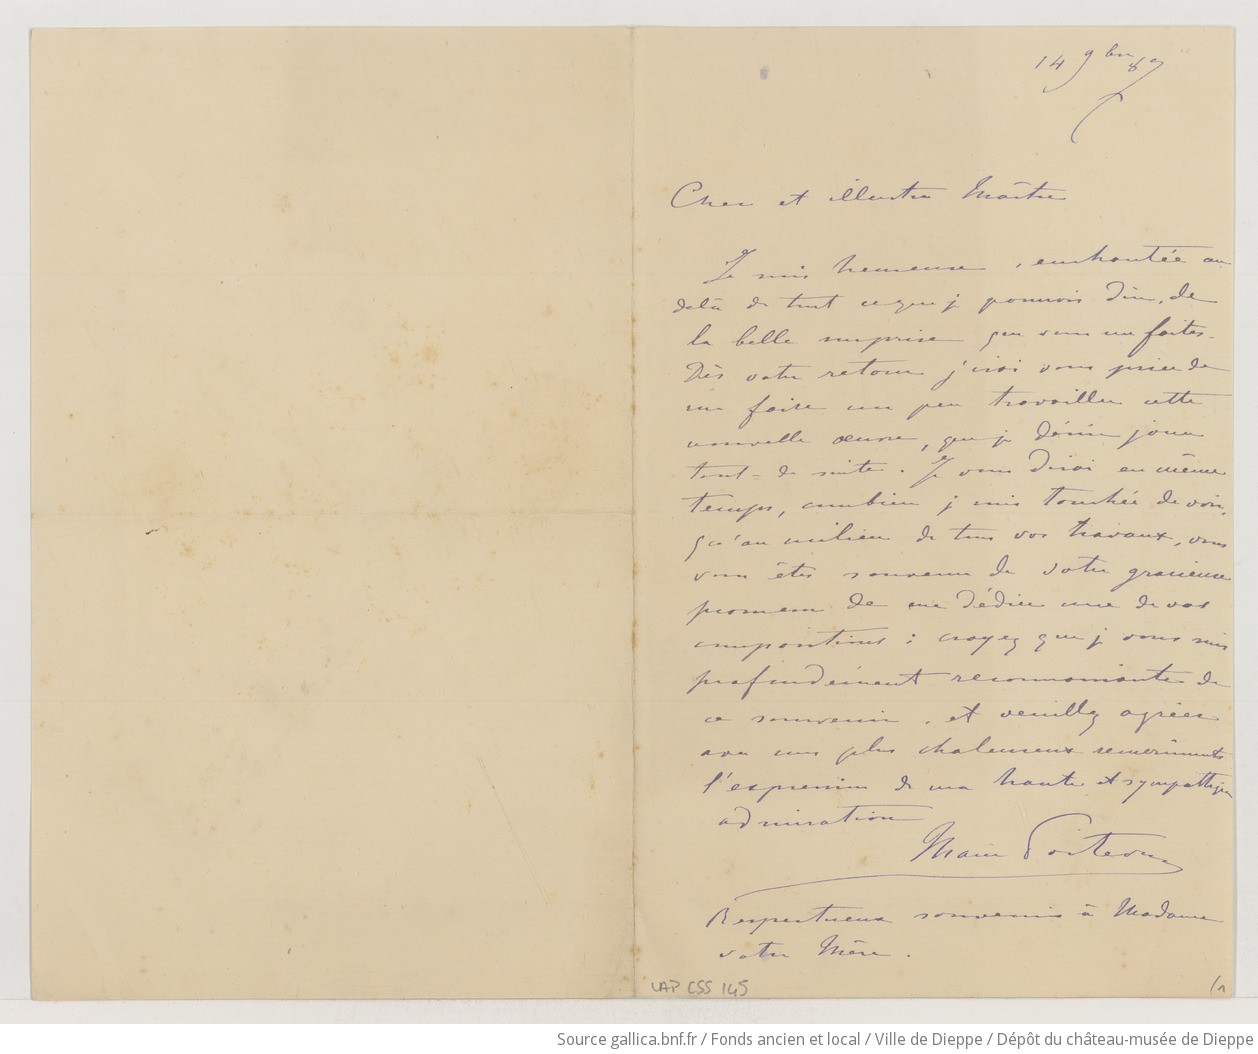 14 9bre 87
Cher et illustre Maître
Je suis heureuse, enchantée au
delà de tout ce que je pourrais dire, de
la belle surprise que vous me faites.
Dès votre retour j'irai vous prier de
me faire un peu travailler cette
nouvelle œuvre, que je désire jouer
tout-de suite. Je vous dirai en même
temps, combien je suis touchée de voir,
qu'au milieu de tous vos travaux, vous
vous êtes souvenu de votre gracieuse
promesse de me dédier une de vos
compositions : croyez que je vous suis
profondément reconnaissante de
ce souvenir, et veuillez agréer
avec mes plus chaleureux remerciments
l'expression de ma haute et sympathique
admiration
Marie Poitevin
Respectueux souvenirs à Madame
votre Mère.
LAP CSS 145
Source gallica.bnf.fr / Fonds ancien et local / Ville de Dieppe / Dépôt du château-musée de Dieppe